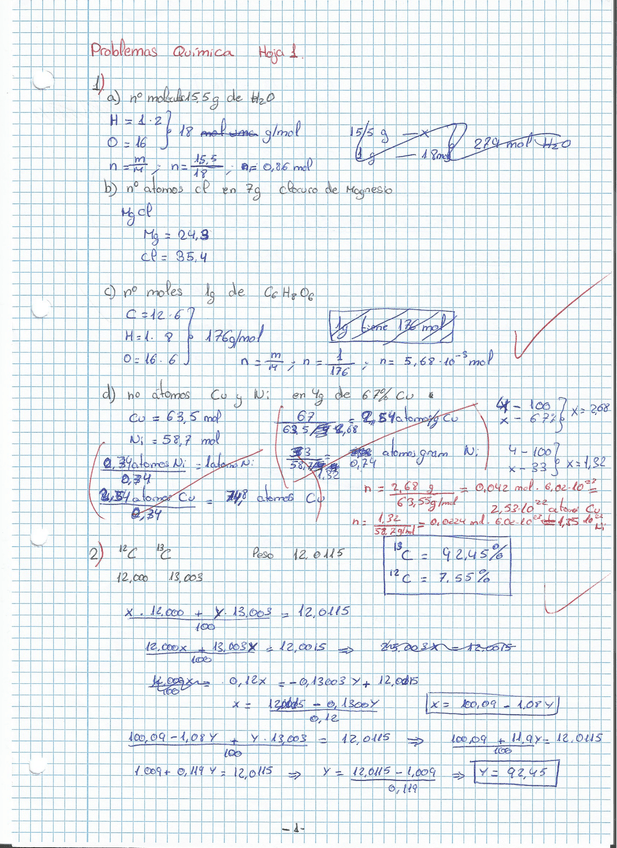 Problemas Química Hoja 1.
1)
a) nº 15,5g de H2O
H = 1·2
O = 16
18 g/mol
15,5 g — x
1g — 18mol
279 mol H2O
n = m/M ; n = 15,5/18 ; n = 0,86 mol
b) nº átomos cl en 7g cloruro de Magnesio
Mg cl
Mg = 24,3
Cl = 35,4
c) nº moles 1g de C6 H8 O6
C = 12·6
H = 1· 8
O = 16·6
176g/mol
1g tiene 176 mol
n = m/M ; n = 1/176 ; n = 5,68·10⁻³ mol
d) nº átomos Cu y Ni en 4g de 67% Cu
Cu = 63,5 mol
Ni = 58,7 mol
67
átomos/g Cu
4 – 100
x – 67%
x = 2,68
átomogram Ni
0,74
1,32
4 – 100
x – 33
x = 1,32
0,34 átomos Ni/0,34 = 1 átomo Ni
átomos Cu/0,34 = átomos Cu
n = 2,68 g/63,55g/mol = 0,042 mol · 6,02·10²³ =
2,53·10²² átom Cu
n = 1,32/58,7g/mol = 0,0224 mol · 6,02·10²³ = 1,35·10²² Ni
2) ¹²C ¹³C Peso 12,0115
12,000 13,003
¹³C = 92,45%
¹²C = 7,55%
x · 12,000 + y · 13,003/100 = 12,0115
12,000x + 13,003y/100 = 12,0015 ⇒ 25,003x = 12,0015
12,000x/100 = 0,12x = -0,13003 y + 12,0015
x = 12,0115 – 0,1300y/0,12
x = 100,09 – 1,08 y
100,09 – 1,08 y + y · 13,003/100 = 12,0115 ⇒ 100,09 + 11,9y/100 = 12,0115
1,009 + 0,119 y = 12,0115 ⇒ y = 12,0115 – 1,009/0,119 ⇒ y = 92,45
– 1 –